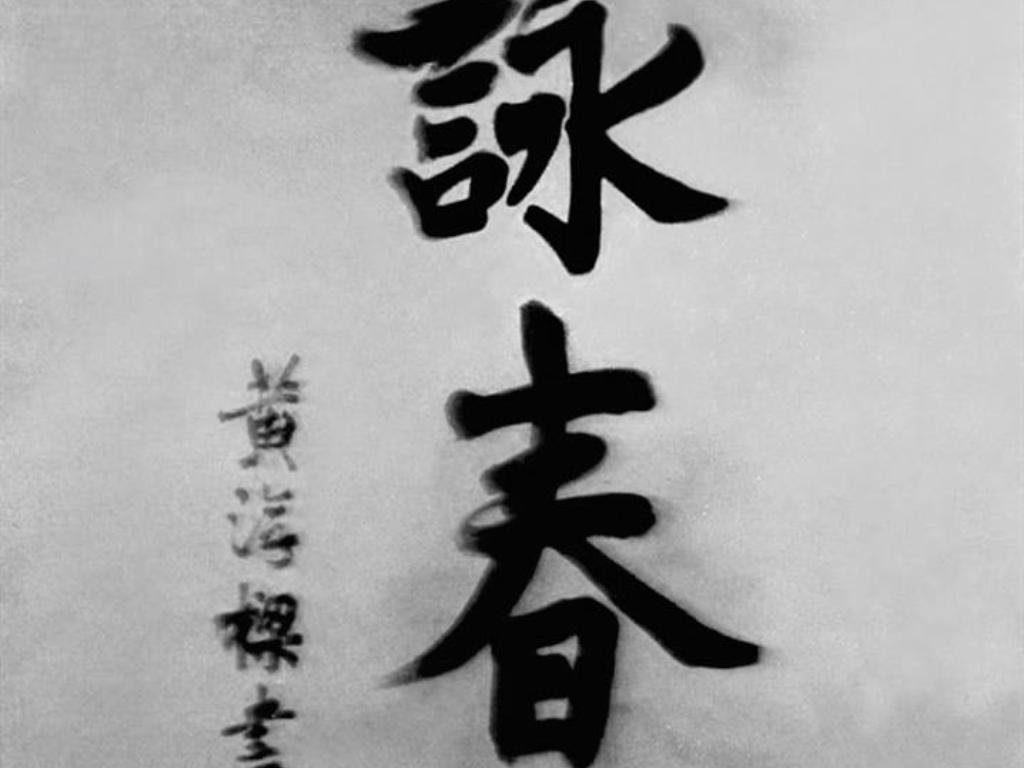 詠春
黃淳樑書